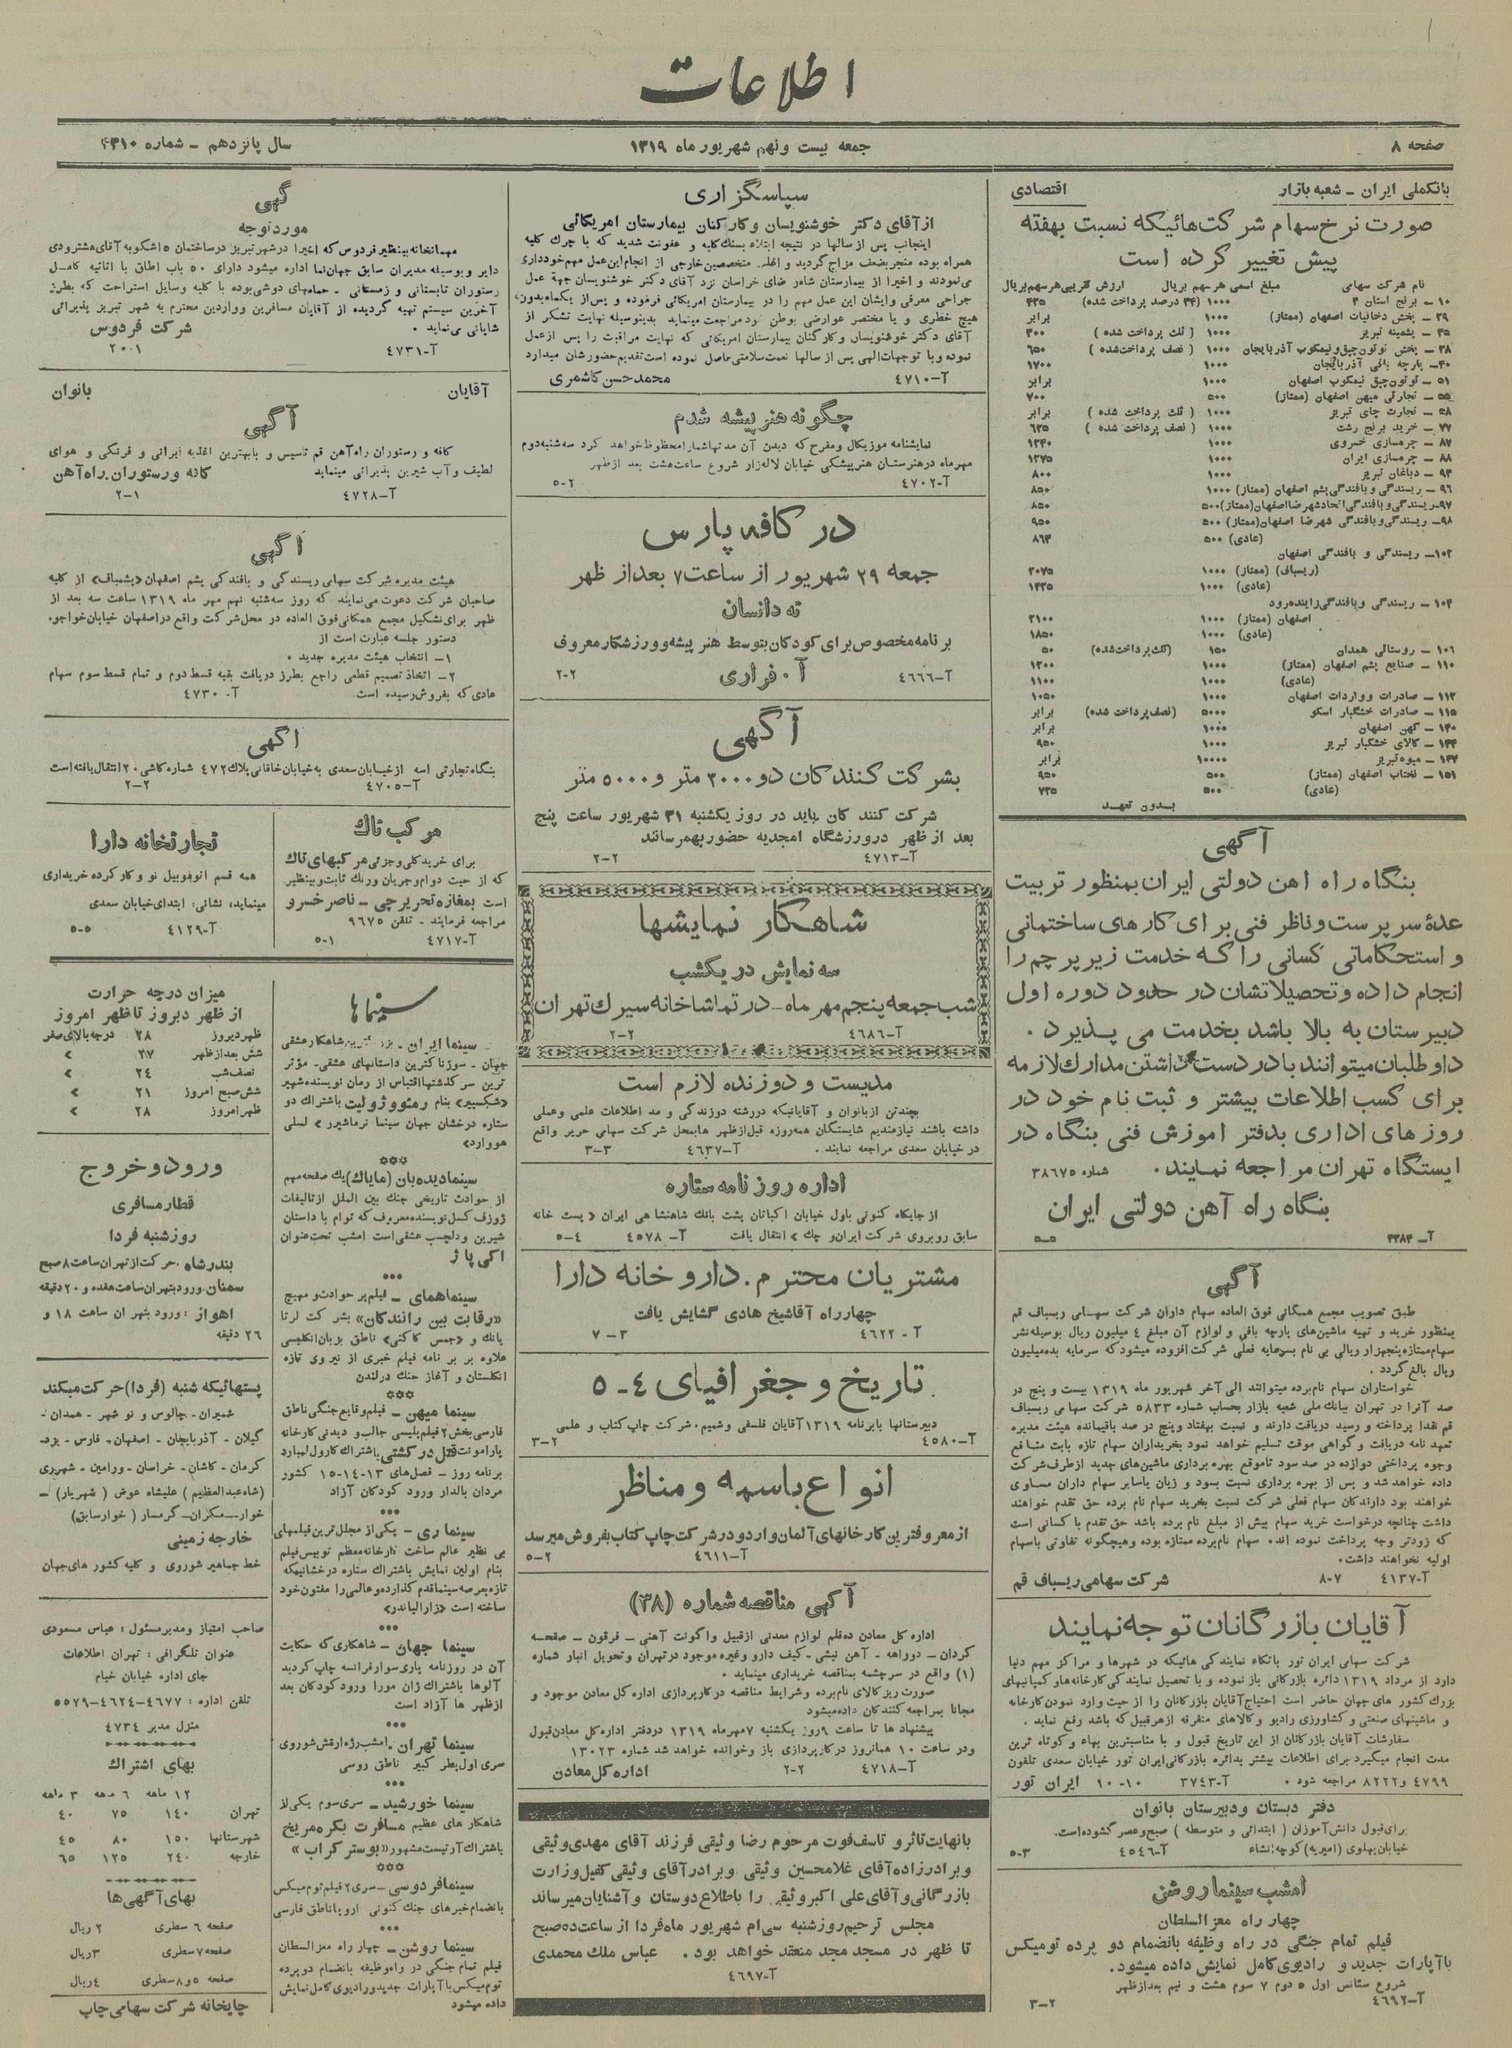 اطلاعات
صفحه ۸
جمعه بیست و نهم شهریور ماه ۱۳۱۹
سال پانزدهم – شماره ۴۳۱۰
بانک‌ملی ایران – شعبه بازار
اقتصادی
صورت نرخ سهام شرکت‌هائیکه نسبت بهفته
پیش تغییر کرده است
نام شرکت سهامی مبلغ اسمی هر سهم بریال ارزش تقریبی هر سهم بریال
۲۹ – پخش دخانیات اصفهان (ممتاز) ۱۰۰۰ برابر
۳۵ – پشمینه تبریز ۱۰۰۰ (ثلث پرداخت شده) ۳۰۰
۳۸ – پخش توتون چپق و تیمکوب آذربایجان ۱۰۰۰ (نصف پرداخت‌شده) ۶۵۰
۴۰ – پارچه بافی آذربایجان ۱۰۰۰ ۱۷۰۰
۵۱ – توتون چپق تیمکوب اصفهان ۱۰۰۰ برابر
۵۵ – تجارتی میهن اصفهان (ممتاز) ۵۰۰ ۷۰۰
۵۸ – تجارت چای تبریز ۱۰۰۰ (ثلث پرداخت شده) برابر
۷۷ – خرید برنج رشت ۱۰۰۰ (نصف پرداخت شده) ۶۲۵
۸۷ – چرمسازی خسروی ۱۰۰۰ ۱۲۴۰
۸۸ – چرمسازی ایران ۱۰۰۰ ۱۲۷۵
۹۳ – دباغان تبریز ۱۰۰۰ ۸۰۰
۹۶ – ریسندگی و بافندگی پشم اصفهان (ممتاز) ۱۰۰۰ ۸۵۰
۹۷ – ریسندگی و بافندگی اتحاد شهرضا اصفهان (ممتاز) ۵۰۰ ۸۵۰
۹۸ – ریسندگی و بافندگی شهرضا اصفهان (ممتاز) ۵۰۰ ۹۵۰
(عادی) ۵۰۰ ۸۶۴
۱۰۲ – ریسندگی و بافندگی اصفهان
(ریسباف) (ممتاز) ۱۰۰۰ ۲۰۷۵
(عادی) ۱۰۰۰ ۱۴۲۵
۱۰۴ – ریسندگی و بافندگی زاینده‌رود
اصفهان (ممتاز) ۱۰۰۰ ۲۱۰۰
(عادی) ۱۰۰۰ ۱۸۵۰
۱۰۶ – روستائی همدان ۱۵۰ (ثلث پرداخت شده) ۵۰
۱۱۰ – صنایع پشم اصفهان (ممتاز) ۱۰۰۰ ۱۲۰۰
(عادی) ۱۰۰۰ ۱۱۰۰
۱۱۲ – صادرات و واردات اصفهان ۱۰۰۰ ۱۰۵۰
۱۱۵ – صادرات خشگبار اسکو ۵۰۰۰ (نصف پرداخت شده) برابر
۱۴۰ – کهن اصفهان ۱۰۰۰ برابر
۱۴۴ – کالای خشکبار تبریز ۱۰۰۰ ۹۵۰
۱۴۷ – میوه تبریز ۱۰۰۰۰ برابر
۱۵۱ – نختاب اصفهان (ممتاز) ۵۰۰ ۹۵۰
(عادی) ۵۰۰ ۷۲۵
بدون تعهد
آگهی
بنگاه راه آهن دولتی ایران بمنظور تربیت
عدهٔ سرپرست و ناظر فنی برای کارهای ساختمانی
و استحکاماتی کسانی را که خدمت زیر پرچم را
انجام داده و تحصیلاتشان در حدود دوره اول
دبیرستان به بالا باشد بخدمت می پذیرد.
داوطلبان میتوانند با در دست داشتن مدارک لازمه
برای کسب اطلاعات بیشتر و ثبت نام خود در
روزهای اداری بدفتر آموزش فنی بنگاه در
ایستگاه تهران مراجعه نمایند. شماره ۳۸۶۷۵
بنگاه راه آهن دولتی ایران
۵–۵
آگهی
طبق تصویب مجمع همگانی فوق العاده سهام داران شرکت سهامی ریسباف قم
بمنظور خرید و تهیه ماشین‌های پارچه بافی و لوازم آن مبلغ ۴ میلیون ریال بوسیله نشر
سهام ممتازه پنجهزار ریالی بی نام بسرمایه فعلی شرکت افزوده میشود که سرمایه بده‌میلیون
ریال بالغ گردد.
خواستاران سهام نام‌برده میتوانند الی آخر شهریور ماه ۱۳۱۹ بیست و پنج در
صد آنرا در تهران ببانک ملی شعبه بازار بحساب شماره ۵۸۳۳ شرکت سهامی ریسباف
قم نقدا پرداخته و رسید دریافت دارند و نسبت بهفتاد و پنج در صد باقیمانده هیئت مدیره
تعهد نامه دریافت و گواهی موقت تسلیم خواهد نمود بخریداران سهام تازه بابت منافع
وجوه پرداختی دوازده در صد سود تا موقع بهره برداری ماشین‌های جدید از طرف شرکت
داده خواهد شد و پس از بهره برداری نسبت بسود و زیان با سایر سهام داران مساوی
خواهند بود دارندگان سهام فعلی شرکت نسبت بخرید سهام نام برده حق تقدم خواهند
داشت چنانچه درخواست خرید سهام بیش از مبلغ نام برده باشد حق تقدم با کسانی است
که زودتر وجه پرداخت نموده اند. سهام نام‌برده ممتازه بوده و هیچگونه تفاوتی با سهام
اولیه نخواهند داشت.
آ–۴۱۳۷ ۷–۸ شرکت سهامی ریسباف قم
آقایان بازرگانان توجه نمایند
شرکت سهامی ایران تور باتکاء نمایندگی هائیکه در شهرها و مراکز مهم دنیا
دارد از مرداد ۱۳۱۹ دائره بازرگانی باز نموده و با تحصیل نمایندگی کارخانه‌ها و کمپانیهای
بزرگ کشور های جهان حاضر است احتیاج آقایان بازرگانان را از حیث وارد نمودن کارخانه
و ماشینهای صنعتی و کشاورزی رادیو و کالاهای متفرقه از هر قبیل که باشد رفع نماید.
سفارشات آقایان بازرگانان از این تاریخ قبول و با مناسبترین بهاء و کوتاه ترین
مدت انجام میگیرد برای اطلاعات بیشتر بدائره بازرگانی ایران تور خیابان سعدی تلفون
۴۷۹۹ و ۸۲۲۲ مراجعه شود. آ–۳۷۴۳ ۱۰–۱۰ ایران تور
دفتر دبستان و دبیرستان بانوان
برای قبول دانش‌آموزان (ابتدائی و متوسطه) صبح و عصر گشوده است.
خیابان پهلوی (امیریه) کوچه: نشاء آ–۴۵۴۶ ۳–۵
امشب سینما روشن
چهار راه معز السلطان
فیلم تمام جنگی در راه وظیفه بانضمام دو پرده تومیکس
با آپارات جدید و رادیوی کامل نمایش داده میشود.
شروع سئانس اول ۵ دوم ۷ سوم هشت و نیم بعد از ظهر
آ–۴۶۹۲ ۲–۳
سپاسگزاری
از آقای دکتر خوشنویسان و کارکنان بیمارستان امریکائی
اینجانب پس از سالها در نتیجه ابتلاء بسنگ کلیه و عفونت شدید که با چرک کلیه
همراه بوده منجر بضعف مزاج گردید و اغلب متخصصین خارجی از انجام این عمل مهم خودداری
می‌نمودند و اخیرا از بیمارستان شاه‌رضای خراسان نزد آقای دکتر خوشنویسان جهة عمل
جراحی معرفی و ایشان این عمل مهم را در بیمارستان امریکائی فرموده و پس از یکماه بدون
هیچ خطری و یا مختصر عوارضی بوطن خود مراجعت مینماید بدینوسیله نهایت تشکر از
آقای دکتر خوشنویسان و کارکنان بیمارستان امریکائی که نهایت مراقبت را پس از عمل
نموده و با توجهات الهی پس از سالها نعمت سلامتی حاصل نموده است تقدیم حضورشان میدارد
آ–۴۷۱۰ محمد حسن کاشمری
چگونه هنرپیشه شدم
نمایشنامه موزیکال و مفرح که دیدن آن مدتها شما را محظوظ خواهد کرد سه‌شنبه دوم
مهرماه در هنرستان هنرپیشگی خیابان لاله‌زار شروع ساعت هشت بعد از ظهر
آ–۴۷۰۲ ۲–۵
در کافه پارس
جمعه ۲۹ شهریور از ساعت ۷ بعد از ظهر
ته دانسان
برنامه مخصوص برای کودکان بتوسط هنرپیشه و ورزشکار معروف
آ–۴۶۶۶ آ. فراری ۲–۲
آگهی
بشرکت کنندگان دو ۲۰۰۰ متر و ۵۰۰۰ متر
شرکت کنندگان باید در روز یکشنبه ۳۱ شهریور ساعت پنج
بعد از ظهر در ورزشگاه امجدیه حضور بهمرسانند
آ–۴۷۱۳ ۲–۲
شاهکار نمایشها
سه نمایش در یکشب
شب جمعه پنجم مهر ماه – در تماشاخانه سیرک تهران
آ–۴۶۸۶ ۲–۲
مدیست و دوزنده لازم است
بچندتن از بانوان و آقایانیکه در رشته دوزندگی و مد اطلاعات علمی و عملی
داشته باشند نیازمندیم شایستگان همه‌روزه قبل از ظهرها بمحل شرکت سهامی حریر واقع
در خیابان سعدی مراجعه نمایند. آ–۴۶۳۷ ۳–۳
اداره روزنامه ستاره
از جایگاه کنونی باول خیابان اکباتان پشت بانک شاهنشاهی ایران «پست خانه
سابق روبروی شرکت ایران و چک» انتقال یافت آ–۴۵۷۸ ۴–۵
مشتریان محترم. داروخانه دارا
چهارراه آقاشیخ هادی گشایش یافت
آ–۴۶۲۲ ۳–۷
تاریخ و جغرافیای ۴–۵
دبیرستانها با برنامه ۱۳۱۹ آقایان فلسفی و شمیم. شرکت چاپ کتاب و علمی
آ–۴۵۸۰ ۲–۳
انواع باسمه و مناظر
از معروفترین کارخانهای آلمان وارد و در شرکت چاپ کتاب بفروش میرسد
آ–۴۶۱۱ ۲–۵
آگهی مناقصه شماره (۳۸)
اداره کل معادن ده‌قلم لوازم معدنی از قبیل واگونت آهنی – فرقون – صفحه
گردان – دوراهه – آهن نبشی – کیف دارو و غیره موجود در تهران و تحویل انبار شماره
(۱) واقع در سرچشمه بمناقصه خریداری مینماید.
صورت ریز کالای نام‌برده و شرایط مناقصه در کارپردازی اداره کل معادن موجود و
مجانا بمراجعه کنندگان داده میشود
پیشنهاد ها تا ساعت ۹ روز یکشنبه ۷ مهر ماه ۱۳۱۹ در دفتر اداره کل معادن قبول
و در ساعت ۱۰ همانروز در کارپردازی باز و خوانده خواهد شد شماره ۱۳۰۲۳
آ–۴۷۱۸ ۲–۲ اداره کل معادن
با نهایت تاثر و تاسف فوت مرحوم رضا وثیقی فرزند آقای مهدی وثیقی
و برادرزاده آقای غلامحسین وثیقی و برادر آقای وثیقی کفیل وزارت
بازرگانی و آقای علی اکبر وثیقی را باطلاع دوستان و آشنایان میرساند
مجلس ترحیم روز شنبه سی‌ام شهریور ماه فردا از ساعت ده صبح
تا ظهر در مسجد مجد منعقد خواهد بود. عباس ملک محمدی
آ–۴۶۹۷
گهی
مورد توجه
مهمانخانه بینظیر فردوس که اخیرا در شهر تبریز در ساختمان ۵ اشکوبه آقای هشترودی
دایر و بوسیله مدیران سابق جهان‌نما اداره میشود دارای ۵۰ باب اطاق با اثاثیه کامل
رستوران تابستانی و زمستانی – حمامهای دوشی بوده با کلیه وسایل استراحت که بطرز
آخرین سیستم تهیه گردیده از آقایان مسافرین و واردین محترم به شهر تبریز پذیرائی
شایانی می‌نماید. شرکت فردوس
آ–۴۷۳۱ ۱–۲۰
آقایان بانوان
آگهی
کافه و رستوران راه‌آهن قم تاسیس و با بهترین اغذیه ایرانی و فرنگی و هوای
لطیف و آب شیرین پذیرائی مینماید کافه و رستوران راه‌آهن
آ–۴۷۲۸ ۱–۲
آگهی
هیئت مدیره شرکت سهامی ریسندگی و بافندگی پشم اصفهان «پشمباف» از کلیه
صاحبان شرکت دعوت می‌نمایند که روز سه‌شنبه نهم مهر ماه ۱۳۱۹ ساعت سه بعد از
ظهر برای تشکیل مجمع همگانی فوق العاده در محل شرکت واقع در اصفهان خیابان خواجو.
دستور جلسه عبارت است از
۱– انتخاب هیئت مدیره جدید.
۲– اتخاذ تصمیم قطعی راجع بطرز دریافت بقیه قسط دوم و تمام قسط سوم سهام
عادی که بفروش رسیده است آ–۴۷۳۰
آگهی
بنگاه تجارتی اسه از خیابان سعدی به خیابان خاقانی پلاک ۴۷۲ شماره کاشی ۲۰ انتقال یافته است
آ–۴۷۰۵ ۲–۲
مرکب تاک
برای خرید کلی و جزئی مرکبهای تاک
که از حیث دوام و جریان و رنگ ثابت و بینظیر
است بمغازه تحریرچی – ناصر خسرو
مراجعه فرمایند – تلفن ۹۶۷۵
آ–۴۷۱۷ ۱–۵
تجارتخانه دارا
همه قسم اتوموبیل نو و کار کرده خریداری
مینماید، نشانی: ابتدای خیابان سعدی
آ–۴۱۲۹ ۵–۵
سینماها
سینما ایران – شاهکار عشقی
جهان – سوزناکترین داستانهای عشقی – مؤثر
ترین سرگذشتها اقتباس از رمان نویسنده شهیر
«شکسپیر» بنام رمئو و ژولیت باشتراک دو
ستاره درخشان جهان سینما نرماشیرر» لسلی
هووارد»
سینما دیده‌بان (مایاک) یک صفحه مهم
از حوادث تاریخی جنگ بین الملل از تالیفات
ژوزف کسل نویسنده معروف که توام با داستان
شیرین و دلچسب عشقی است امشب تحت عنوان
اکی پاژ
سینما همای – فیلم پر حوادث و مهیج
«رقابت بین رانندگان» بشرکت لرتا
یانک و «جمس کاگنی» ناطق بزبان انگلیسی
علاوه بر برنامه فیلم خبری از نیروی تازه
انگلستان و آغاز جنگ در لندن
سینما میهن – فیلم وقایع جنگی ناطق
فارسی بخش ۲ فیلم پلیسی جالب و دیدنی کارخانه
پارامونت قتل در کشتی باشتراک کارول لمبارد
برنامه روز – فصل‌های ۱۳–۱۴–۱۵ کشور
مردان بالدار ورود کودکان آزاد
سینما ری – یکی از مجلل ترین فیلمهای
بی نظیر عالم ساخت کارخانه معظم توبیس فیلم
بنام اولین نمایش باشتراک ستاره درخشانیکه
تازه بعرصه سینما قدم گذارده و عالمی را مفتون خود
ساخته است «زارالیاندر»
سینما جهان – شاهکاری که حکایت
آن در روزنامه پاری سوار فرانسه چاپ گردید
آلوها باشتراک ژان مورا ورود کودکان بعد
از ظهر ها آزاد است
سینما تهران – امشب رژه ارتش شوروی
سری اول پطر کبیر ناطق روسی
سینما خورشید – سری سوم یکی از
شاهکار های عظیم مسافرت بکره مریخ
باشتراک آرتیست مشهور «بوستر کراب»
سینما فردوسی – سری ۲ فیلم تومیکس
بانضمام خبرهای جنگ کنونی اروپا ناطق فارسی
سینما روشن – چهار راه معز السلطان
فیلم تمام جنگی در راه وظیفه بانضمام دو پرده
تومیکس با آپارات جدید و رادیوی کامل نمایش
داده میشود
میزان درجه حرارت
از ظهر دیروز تا ظهر امروز
ظهر دیروز ۲۸ درجه بالای صفر
شش بعد از ظهر ۲۷ »
نصف شب ۲۴ »
شش صبح امروز ۲۱ »
ظهر امروز ۲۸ »
ورود و خروج
قطار مسافری
روز شنبه فردا
بندر شاه. حرکت از تهران ساعت ۸ صبح
سمنان. ورود بتهران ساعت هفده و ۲۰ دقیقه
اهواز: ورود بتهران ساعت ۱۸ و
۲۶ دقیقه
پستهائیکه شنبه (فردا) حرکت میکند
شمیران – چالوس و نو شهر – همدان –
گیلان – آذربایجان – اصفهان – فارس – یزد –
کرمان – کاشان – خراسان – ورامین – شهرری
(شاه عبدالعظیم) علیشاه عوض (شهریار) –
خوار – مکران – گرمسار (خوار سابق)
خارجه زمینی
خط جماهیر شوروی و کلیه کشور های جهان
صاحب امتیاز و مدیر مسئول: عباس مسعودی
عنوان تلگرافی: تهران اطلاعات
جای اداره خیابان خیام
تلفن اداره: ۴۶۷۷–۴۶۲۴–۵۵۷۹
منزل مدیر ۴۷۳۴
بهای اشتراک
۱۲ ماهه ۶ مهه ۳ ماهه
تهران ۱۴۰ ۷۵ ۴۰
شهرستانها ۱۵۰ ۸۰ ۴۵
خارجه ۲۴۰ ۱۲۵ ۶۵
بهای آگهی‌ها
صفحه ۶ سطری ۲ ریال
صفحه ۷ سطری ۳ ریال
صفحه ۵ و ۸ سطری ۴ ریال
چاپخانه شرکت سهامی چاپ